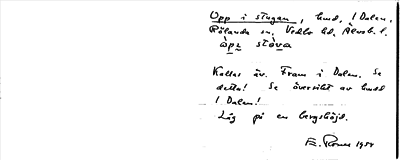 Upp i stugan, hmd. i Dalen,
Rölanda sn, Vedbo hd, Älvsb. l.
Kallas äv. Fram i Dalen. Se
detta! Se översikt av hmd
i Dalen!
Låg på en bergshöjd.
1954